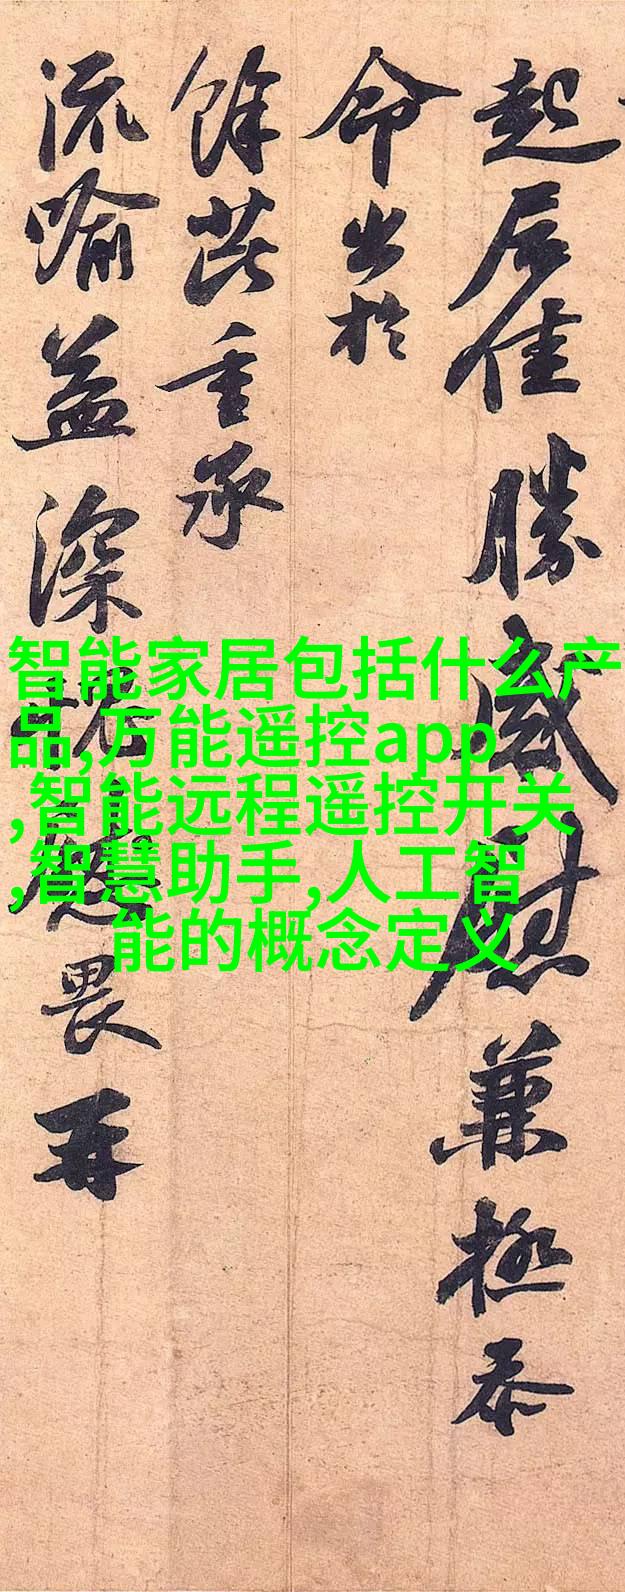 起居佳勝感慰兼極泰
命出於
餘花重承
流喻益深愧慰畏再
智能家居包括什么产
品,万能遥控app
,智能远程遥控开关
,智慧助手,人工智
能的概念定义